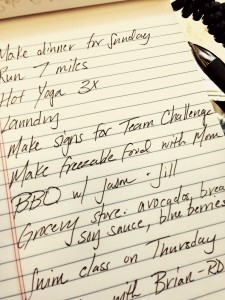 Make dinner for Sunday
Run 7 miles
Hot Yoga 3X
Laundry
Make signs for Team Challenge
Make freezable food with Mom
BBQ w/ Jasm · Jill
Grocery store: avocados, brea
soy sauce, blueberries
Swim class on Thursday
with Brian - RD